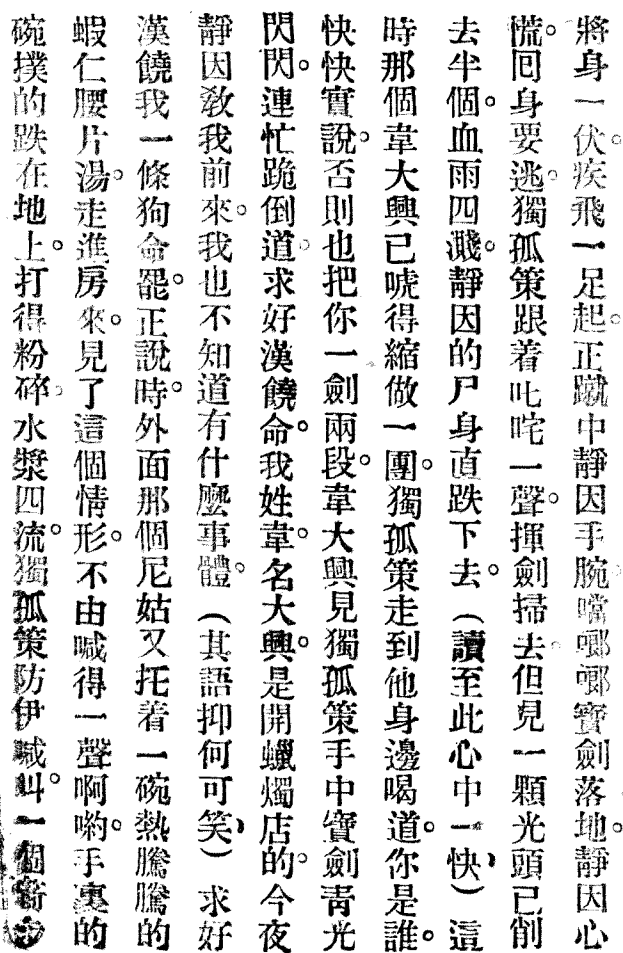 將身一伏。疾飛一足起。正蹴中靜因手腕。噹啷啷寶劍落地。靜因心
慌。回身要逃。獨孤策跟着叱咤一聲。揮劍掃去。但見一顆光頭已削
去半個。血雨四濺。靜因的尸身直跌下去。（讀至此心中一快）這
時那個韋大興已唬得縮做一團。獨孤策走到他身邊喝道。你是誰。
快快實說。否則也把你一劍兩段。韋大興見獨孤策手中寶劍青光
閃閃。連忙跪倒道。求好漢饒命。我姓韋。名大興。是開蠟燭店的。今夜
靜因教我前來。我也不知道有什麼事體。（其語抑何可笑）求好
漢饒我一條狗命罷。正說時。外面那個尼姑又托着一碗熱騰騰的
蝦仁腰片湯。走進房來。見了這個情形。不由喊得一聲啊喲。手裏的
碗撲的跌在地上。打得粉碎。水漿四流。獨孤策防伊喊叫。一個箭步